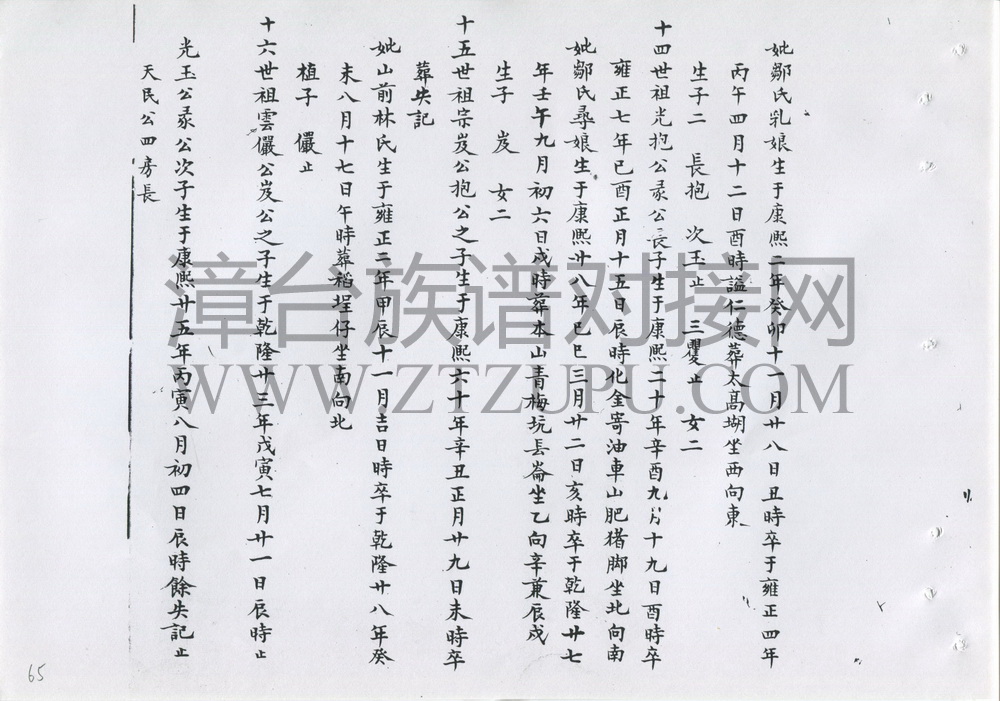 妣鄒氏乳娘生于康熙二年癸卯十一月廿八日丑時卒于雍正四年
丙午四月十二日酉時謚仁德葬太高堋坐西向東
生子二 長抱 次玉止 三瞿止 女二
十四世祖光抱公彔公長子生于康熙二十年辛酉九月十九日酉時卒
雍正七年已酉正月十五日辰時化金寄油車山肥猪脚坐北向南
妣鄒氏尋娘生于康熙卅八年已巳三月廿二日亥時卒于乾隆廿七
年壬午九月初六日戌時葬本山青梅坑長崙坐乙向辛兼辰戌
生子 岌 女二
十五世祖宗岌公抱公之子生于康熙六十年辛丑正月廿九日未時卒
葬失記
妣山前林氏生于雍正二年甲辰十一月吉日時卒于乾隆廿八年癸
未八月十七日午時葬稻埕仔坐南向北
植子 儼止
十六世祖雲儼公岌公之子生于乾隆廿三年戊寅七月廿一日辰時止
光玉公彔公次子生于康熙廿五年丙寅八月初四日辰時餘失記止
天民公四房長
漳台族谱对接网
WWW.ZTZUPU.COM
65